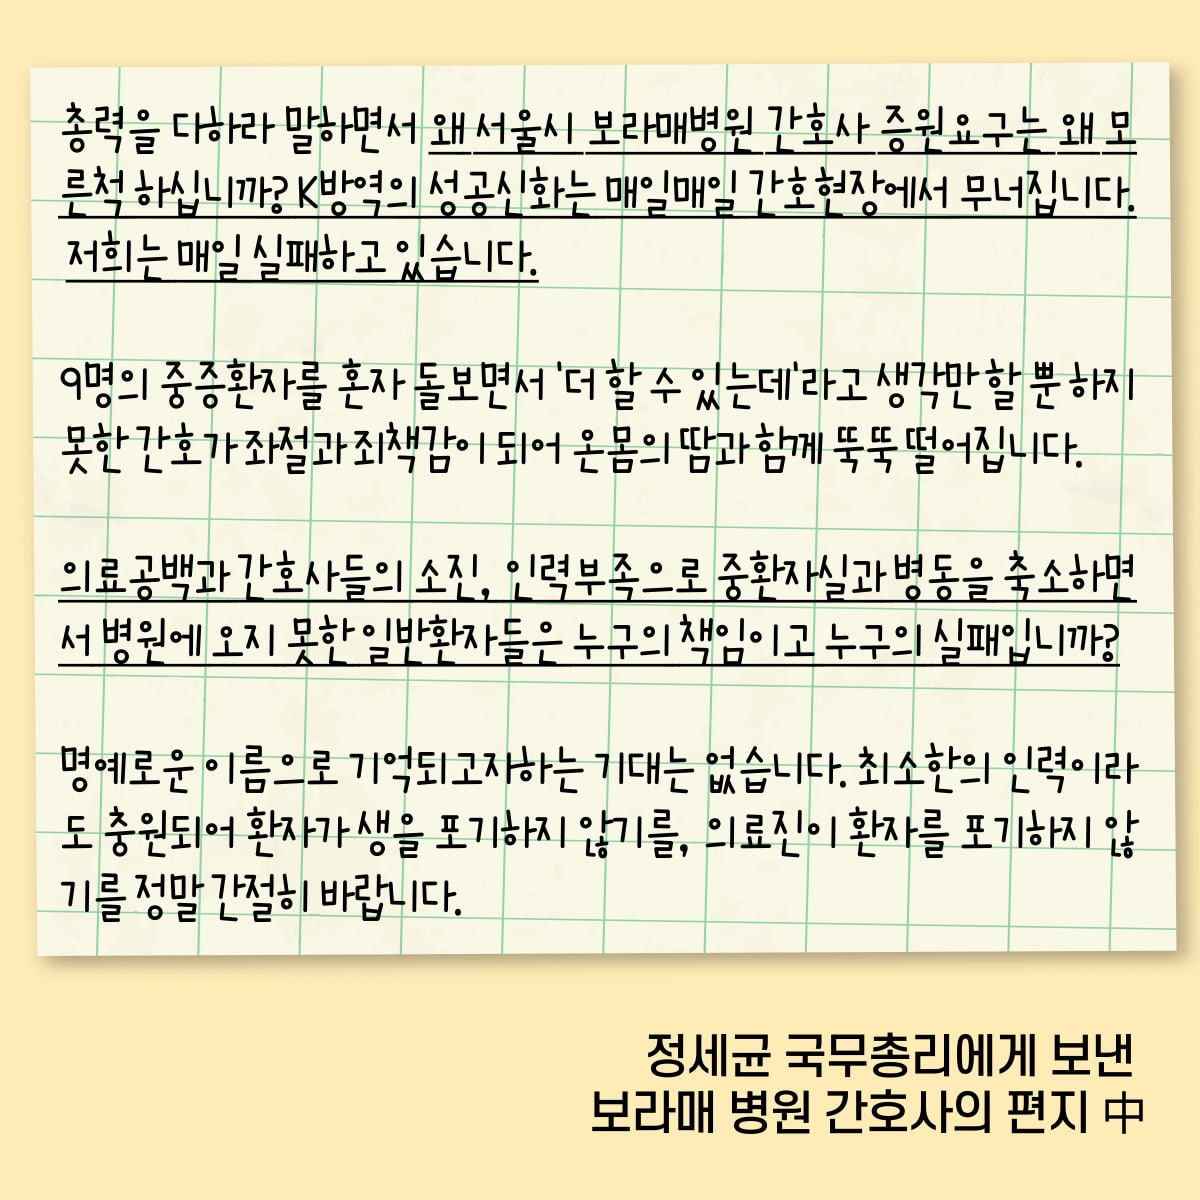 총력을 다하라 말하면서 왜 서울시 보라매병원 간호사 증원요구는 왜 모
른척 하십니까? K방역의 성공신화는 매일매일 간호현장에서 무너집니다.
저희는 매일 실패하고 있습니다.
9명의 중증환자를 혼자 돌보면서 '더 할 수 있는데'라고 생각만 할 뿐 하지
못한 간호가 좌절과 죄책감이 되어 온몸의 땀과 함께 뚝뚝 떨어집니다.
의료공백과 간호사들의 소진, 인력부족으로 중환자실과 병동을 축소하면
서 병원에 오지 못한 일반환자들은 누구의 책임이고 누구의 실패입니까?
명예로운 이름으로 기억되고자하는 기대는 없습니다. 최소한의 인력이라
도 충원되어 환자가 생을 포기하지 않기를, 의료진이 환자를 포기하지 않
기를 정말 간절히 바랍니다.
정세균 국무총리에게 보낸
보라매 병원 간호사의 편지 中